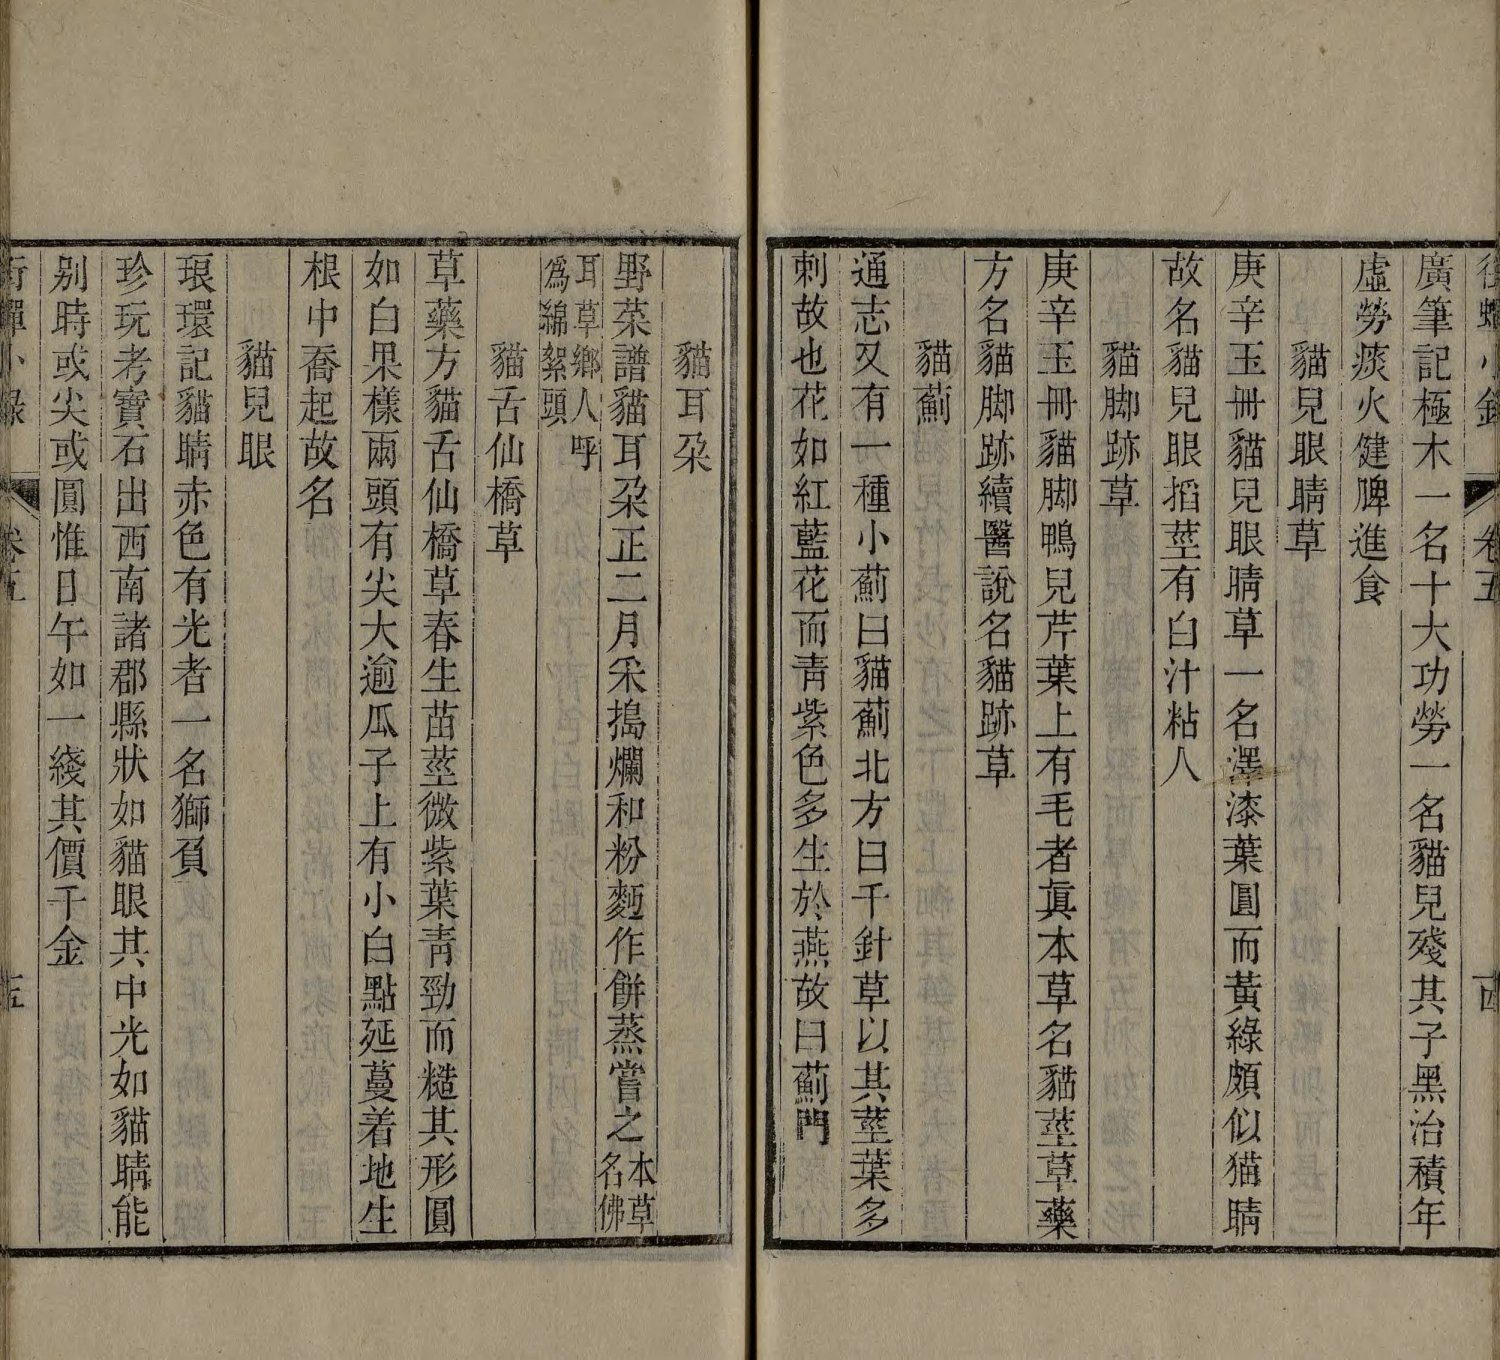 銜蟬小錄 卷五
廣筆記極木一名十大功勞一名貓兒殘其子黑治積年
虛勞痰火健脾進食
貓兒眼睛草
庚辛玉冊貓兒眼睛草一名澤漆葉圓而黃綠頗似猫睛
故名貓兒眼搯莖有白汁粘人
貓脚跡草
庚辛玉冊貓脚鴨兒芹葉上有毛者眞本草名貓莖草藥
方名貓脚跡續醫說名貓跡草
貓薊
通志又有一種小薊曰貓薊北方曰千針草以其莖葉多
刺故也花如紅藍花而靑紫色多生於燕故曰薊門
貓耳朶
野菜譜貓耳朶正二月采搗爛和粉麪作餠蒸嘗之本草名佛
耳草鄉人呼爲綿絮頭
貓舌仙橋草
草藥方貓舌仙橋草春生苗莖微紫葉靑勁而糙其形圓
如白果樣兩頭有尖大逾瓜子上有小白點延蔓着地生
根中喬起故名
貓兒眼
琅環記貓睛赤色有光者一名獅負
珍玩考寶石出西南諸郡縣狀如貓眼其中光如貓睛能
别時或尖或圓惟日午如一綫其價千金
銜蟬小錄 卷五